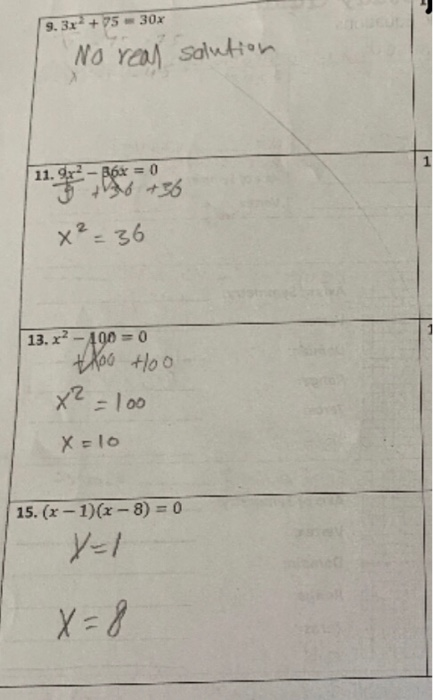 9. 3x² + 75 = 30x
No real solution
11. 9x² − 36x = 0
9 +36 +36
x² = 36
13. x² − 100 = 0
+100 +100
x² = 100
x = 10
15. (x − 1)(x − 8) = 0
x=1
x = 8